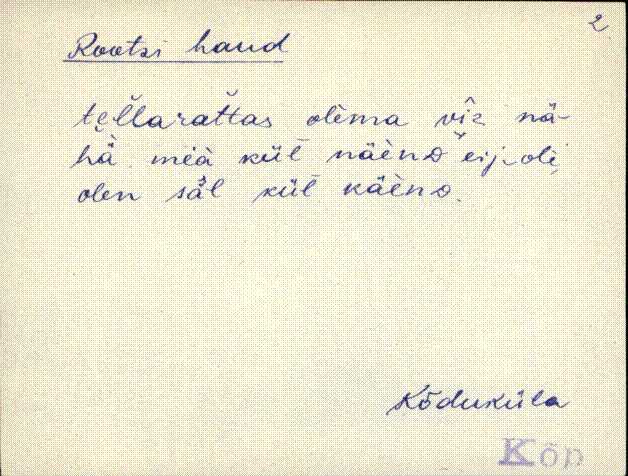 2.
Rootsi haud
tellarattas olema viz nä-
hä mia kül näeno eij-oli,
olen säl kül käeno.
Kõduküla
Kõp